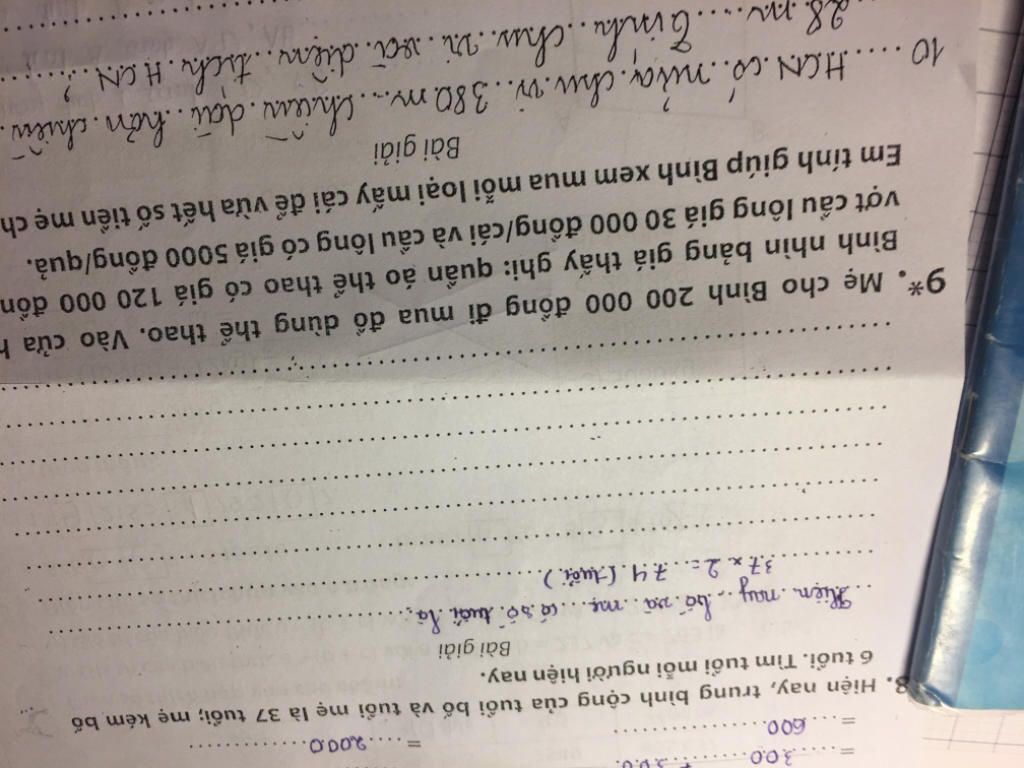 = 300
= 600
= 2000
8. Hiện nay, trung bình cộng của tuổi bố và tuổi mẹ là 37 tuổi; mẹ kém bố
6 tuổi. Tìm tuổi mỗi người hiện nay.
Bài giải
Hiện nay bố và mẹ có số tuổi là:
37 x 2 = 74 (tuổi)
9*. Mẹ cho Bình 200 000 đồng đi mua đồ dùng thể thao. Vào cửa
Bình nhìn bảng giá thấy ghi: quần áo thể thao có giá 120 000
vợt cầu lông giá 30 000 đồng/cái và cầu lông có giá 5000 đồng/quả.
Em tính giúp Bình xem mua mỗi loại mấy cái để vừa hết số tiền mẹ
Bài giải
10 HCN có nửa chu vi 380 m chiều dài hơn chiều
28 m Tính chu vi và diện tích HCN ?